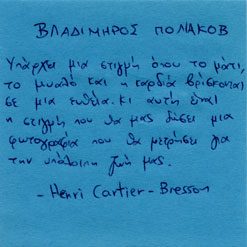 ΒΛΑΔΙΜΗΡΟΣ ΠΟΛΑΚΟΒ
Υπάρχει μια στιγμή όπου το μάτι,
το μυαλό και η καρδιά βρίσκονται
σε μια ευθεία. Κι αυτή είναι
η στιγμή που θα μας δώσει μια
φωτογραφία που θα μετρήσει για
την υπόλοιπη ζωή μας.
- Henri Cartier - Bresson